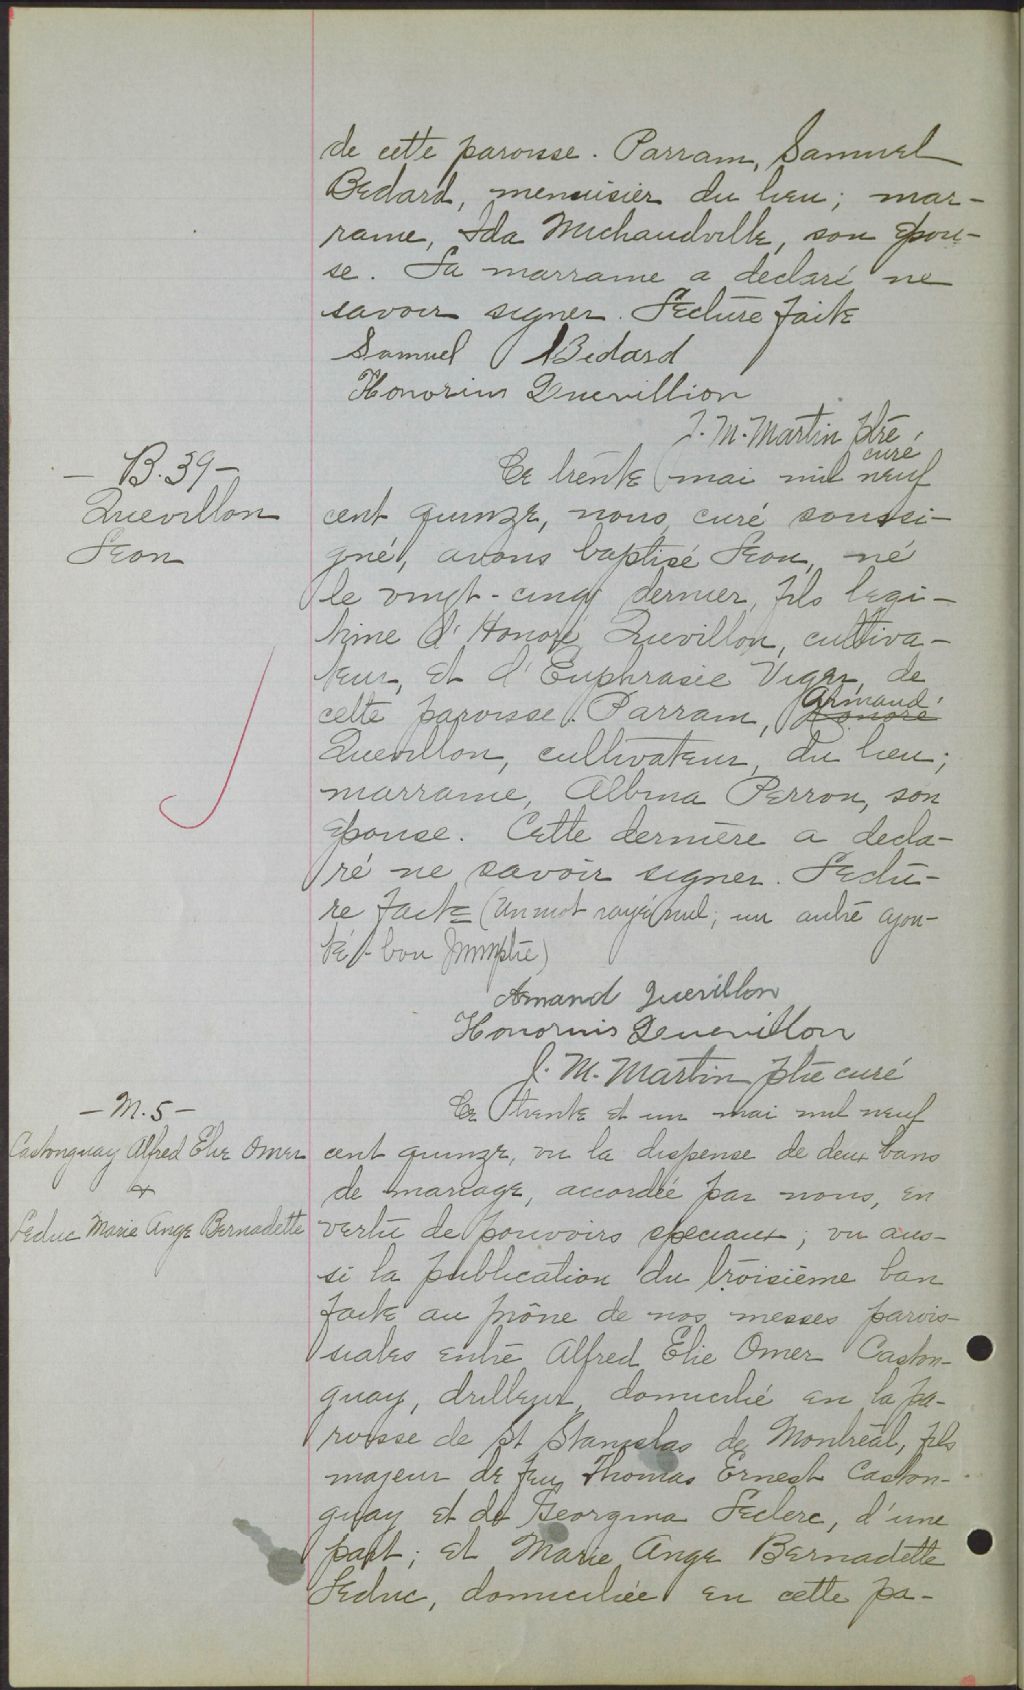 de cette paroisse. Parrain, Samuel
Bedard, menuisier du lieu; mar-
raine, Ida Michaudville, son épou-
se. La marraine a déclaré ne
savoir signer. Lecture faite
Samuel Bedard
Honorius Quevillion
J. M. Martin ptre
curé
— B. 39 —
Quevillon
Leon
Ce trente mai mil neuf
cent quinze, nous curé soussi-
gné, avons baptisé Leon, né
le vingt-cinq dernier, fils legi-
time d'Honoré Quevillon, cultiva-
teur, et d'Euphrasie Viger, de
cette paroisse. Parrain, Armand Honoré
Quevillon, cultivateur, du lieu;
marraine, Albina Perron, son
épouse. Cette dernière a decla-
ré ne savoir signer. Lectu-
re faite (un mot rayé nul; un autre ajou-
té - bon Jmmptre)
Amand Quevillon
Honorius Quevillon
J. M. Martin ptre curé
— M. 5 —
Castonguay Alfred Elie Omer
&
Leduc Marie Ange Bernadette
Ce trente et un mai mil neuf
cent quinze, vu la dispense de deux bans
de mariage, accordée par nous, en
vertu de pouvoirs speciaux; vu aus-
si la publication du troisième ban
faite au prône de nos messes parois-
siales entre Alfred Elie Omer Caston-
guay, drilleur, domicilié en la pa-
roisse de St Stanislas de Montréal, fils
majeur de feu Thomas Ernest Caston-
guay et de Georgina Leclerc, d'une
part; et Marie Ange Bernadette
Leduc, domiciliée en cette pa-